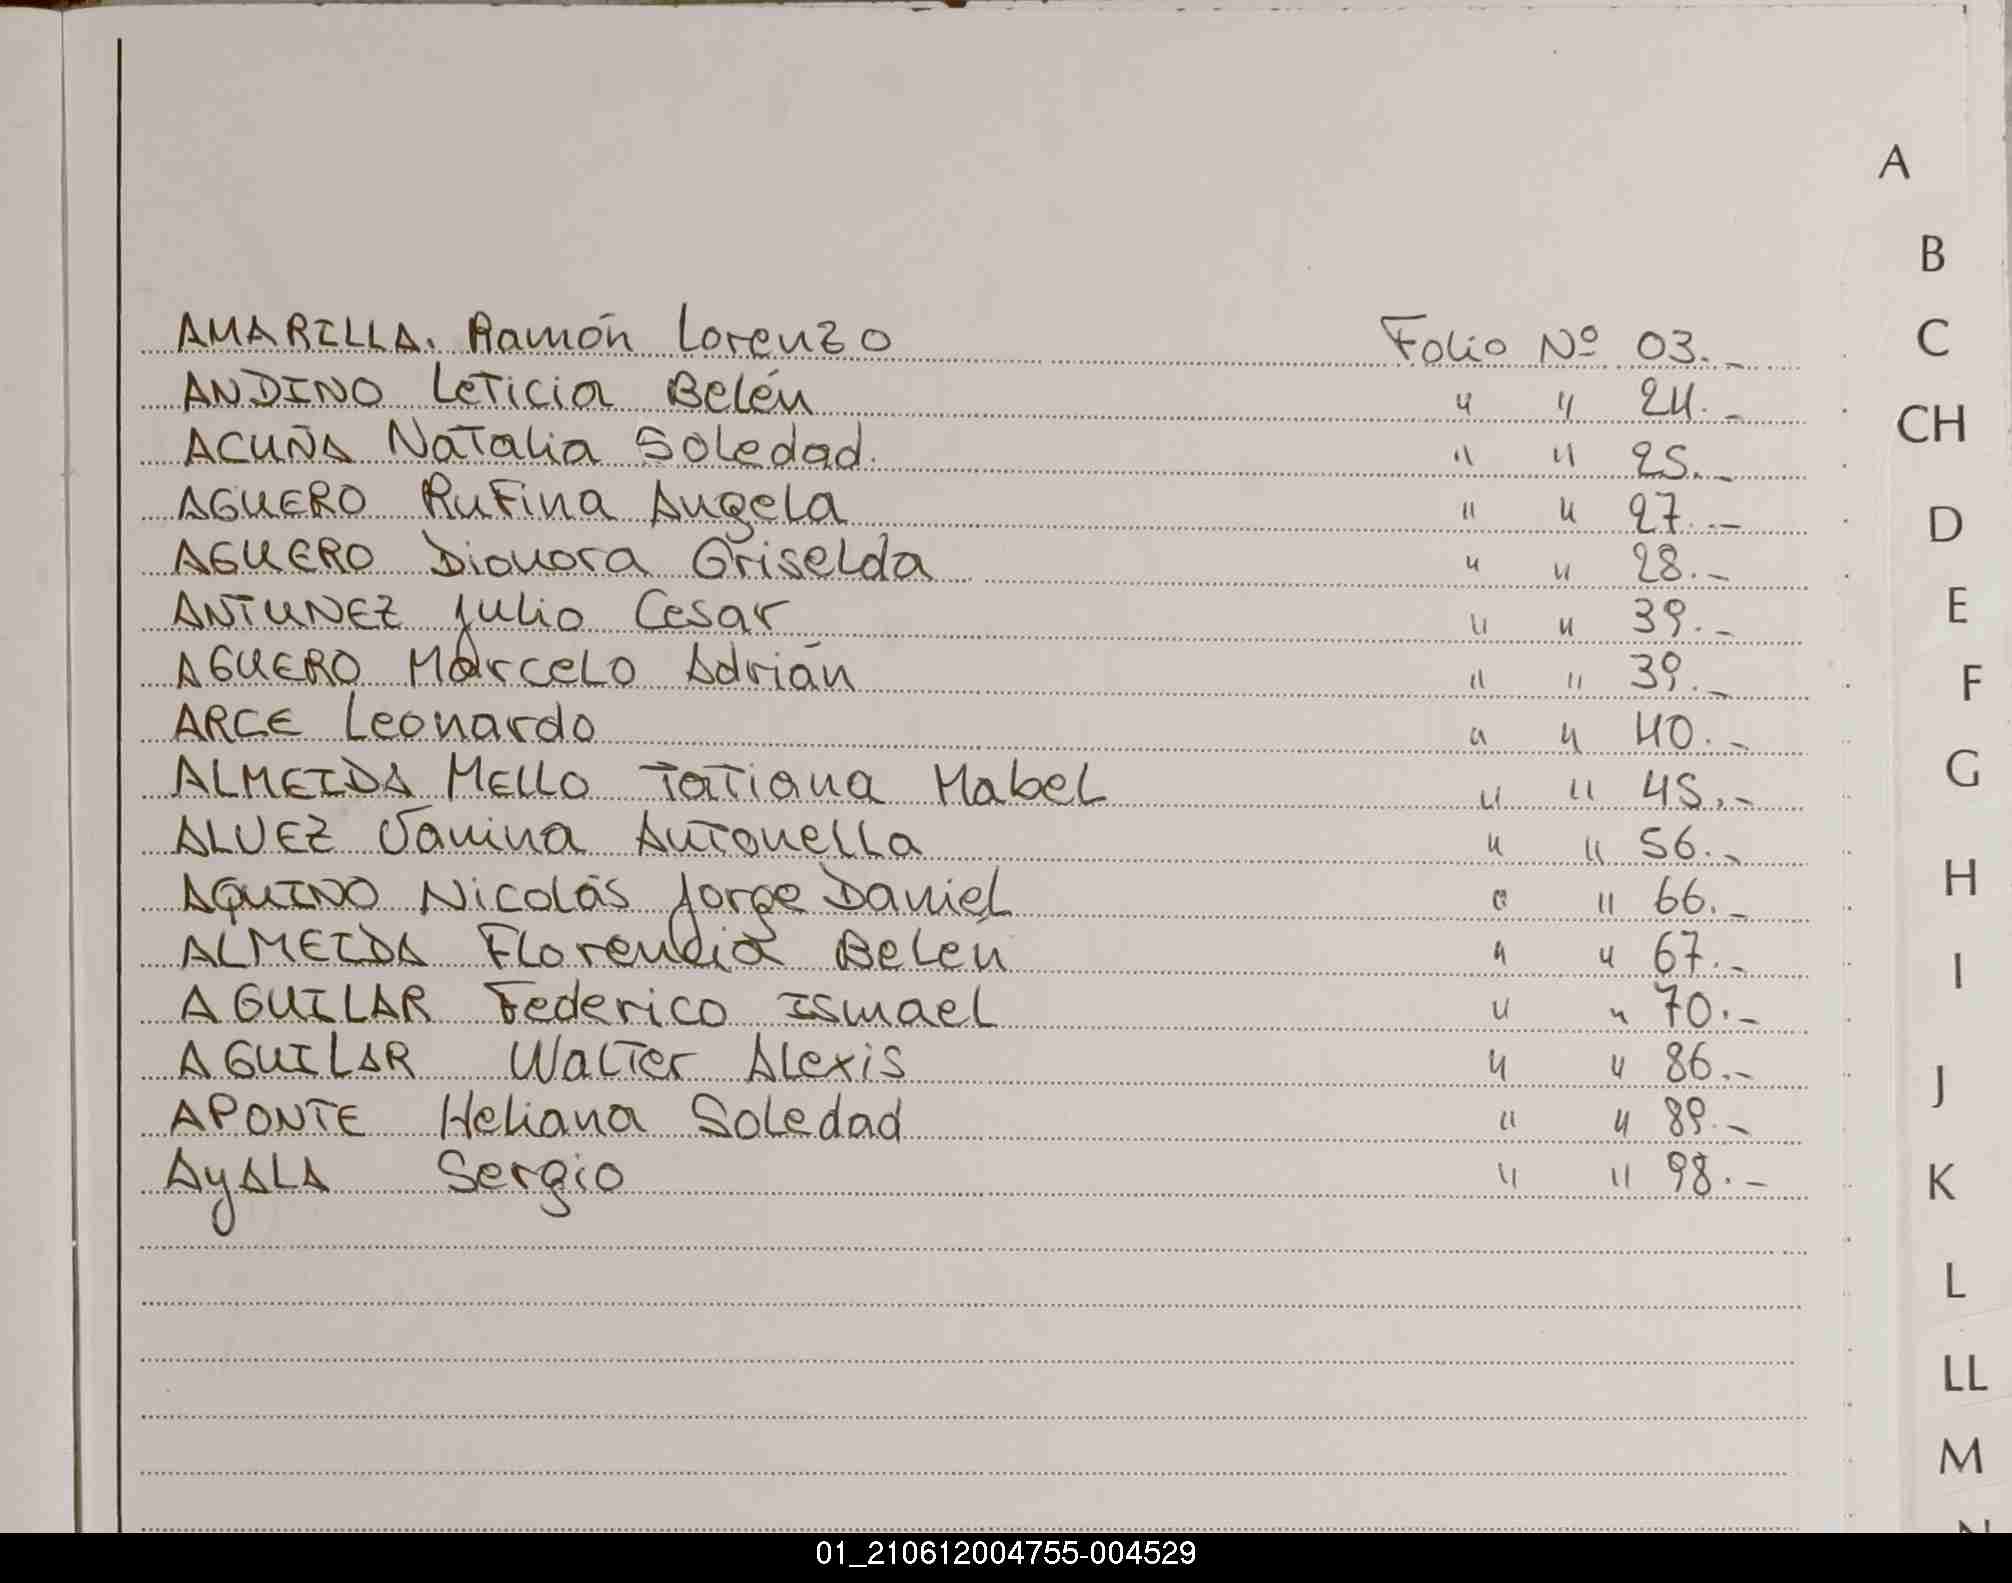 AMARILLA. Ramón Lorenzo Folio Nº 03.-
ANDINO Leticia Belén " " 24.-
ACUÑA Natalia Soledad. " " 25.-
AGUERO Rufina Angela " " 27.-
AGUERO Dionora Griselda " " 28.-
ANTUNEZ Julio Cesar " " 39.-
AGUERO Marcelo Adrián " " 39.-
ARCE Leonardo " " 40.-
ALMEIDA MELLO Tatiana Mabel " " 45.-
ALVEZ Janina Antonella " " 56.-
AQUINO Nicolás Jorge Daniel " " 66.-
ALMEIDA Florencia Belén " " 67.-
AGUILAR Federico Ismael " " 70.-
AGUILAR Walter Alexis " " 86.-
APONTE Heliana Soledad " " 89.-
AyALA Sergio " " 98.-
A
B
C
CH
D
E
F
G
H
I
J
K
L
LL
M
N
01_210612004755-004529